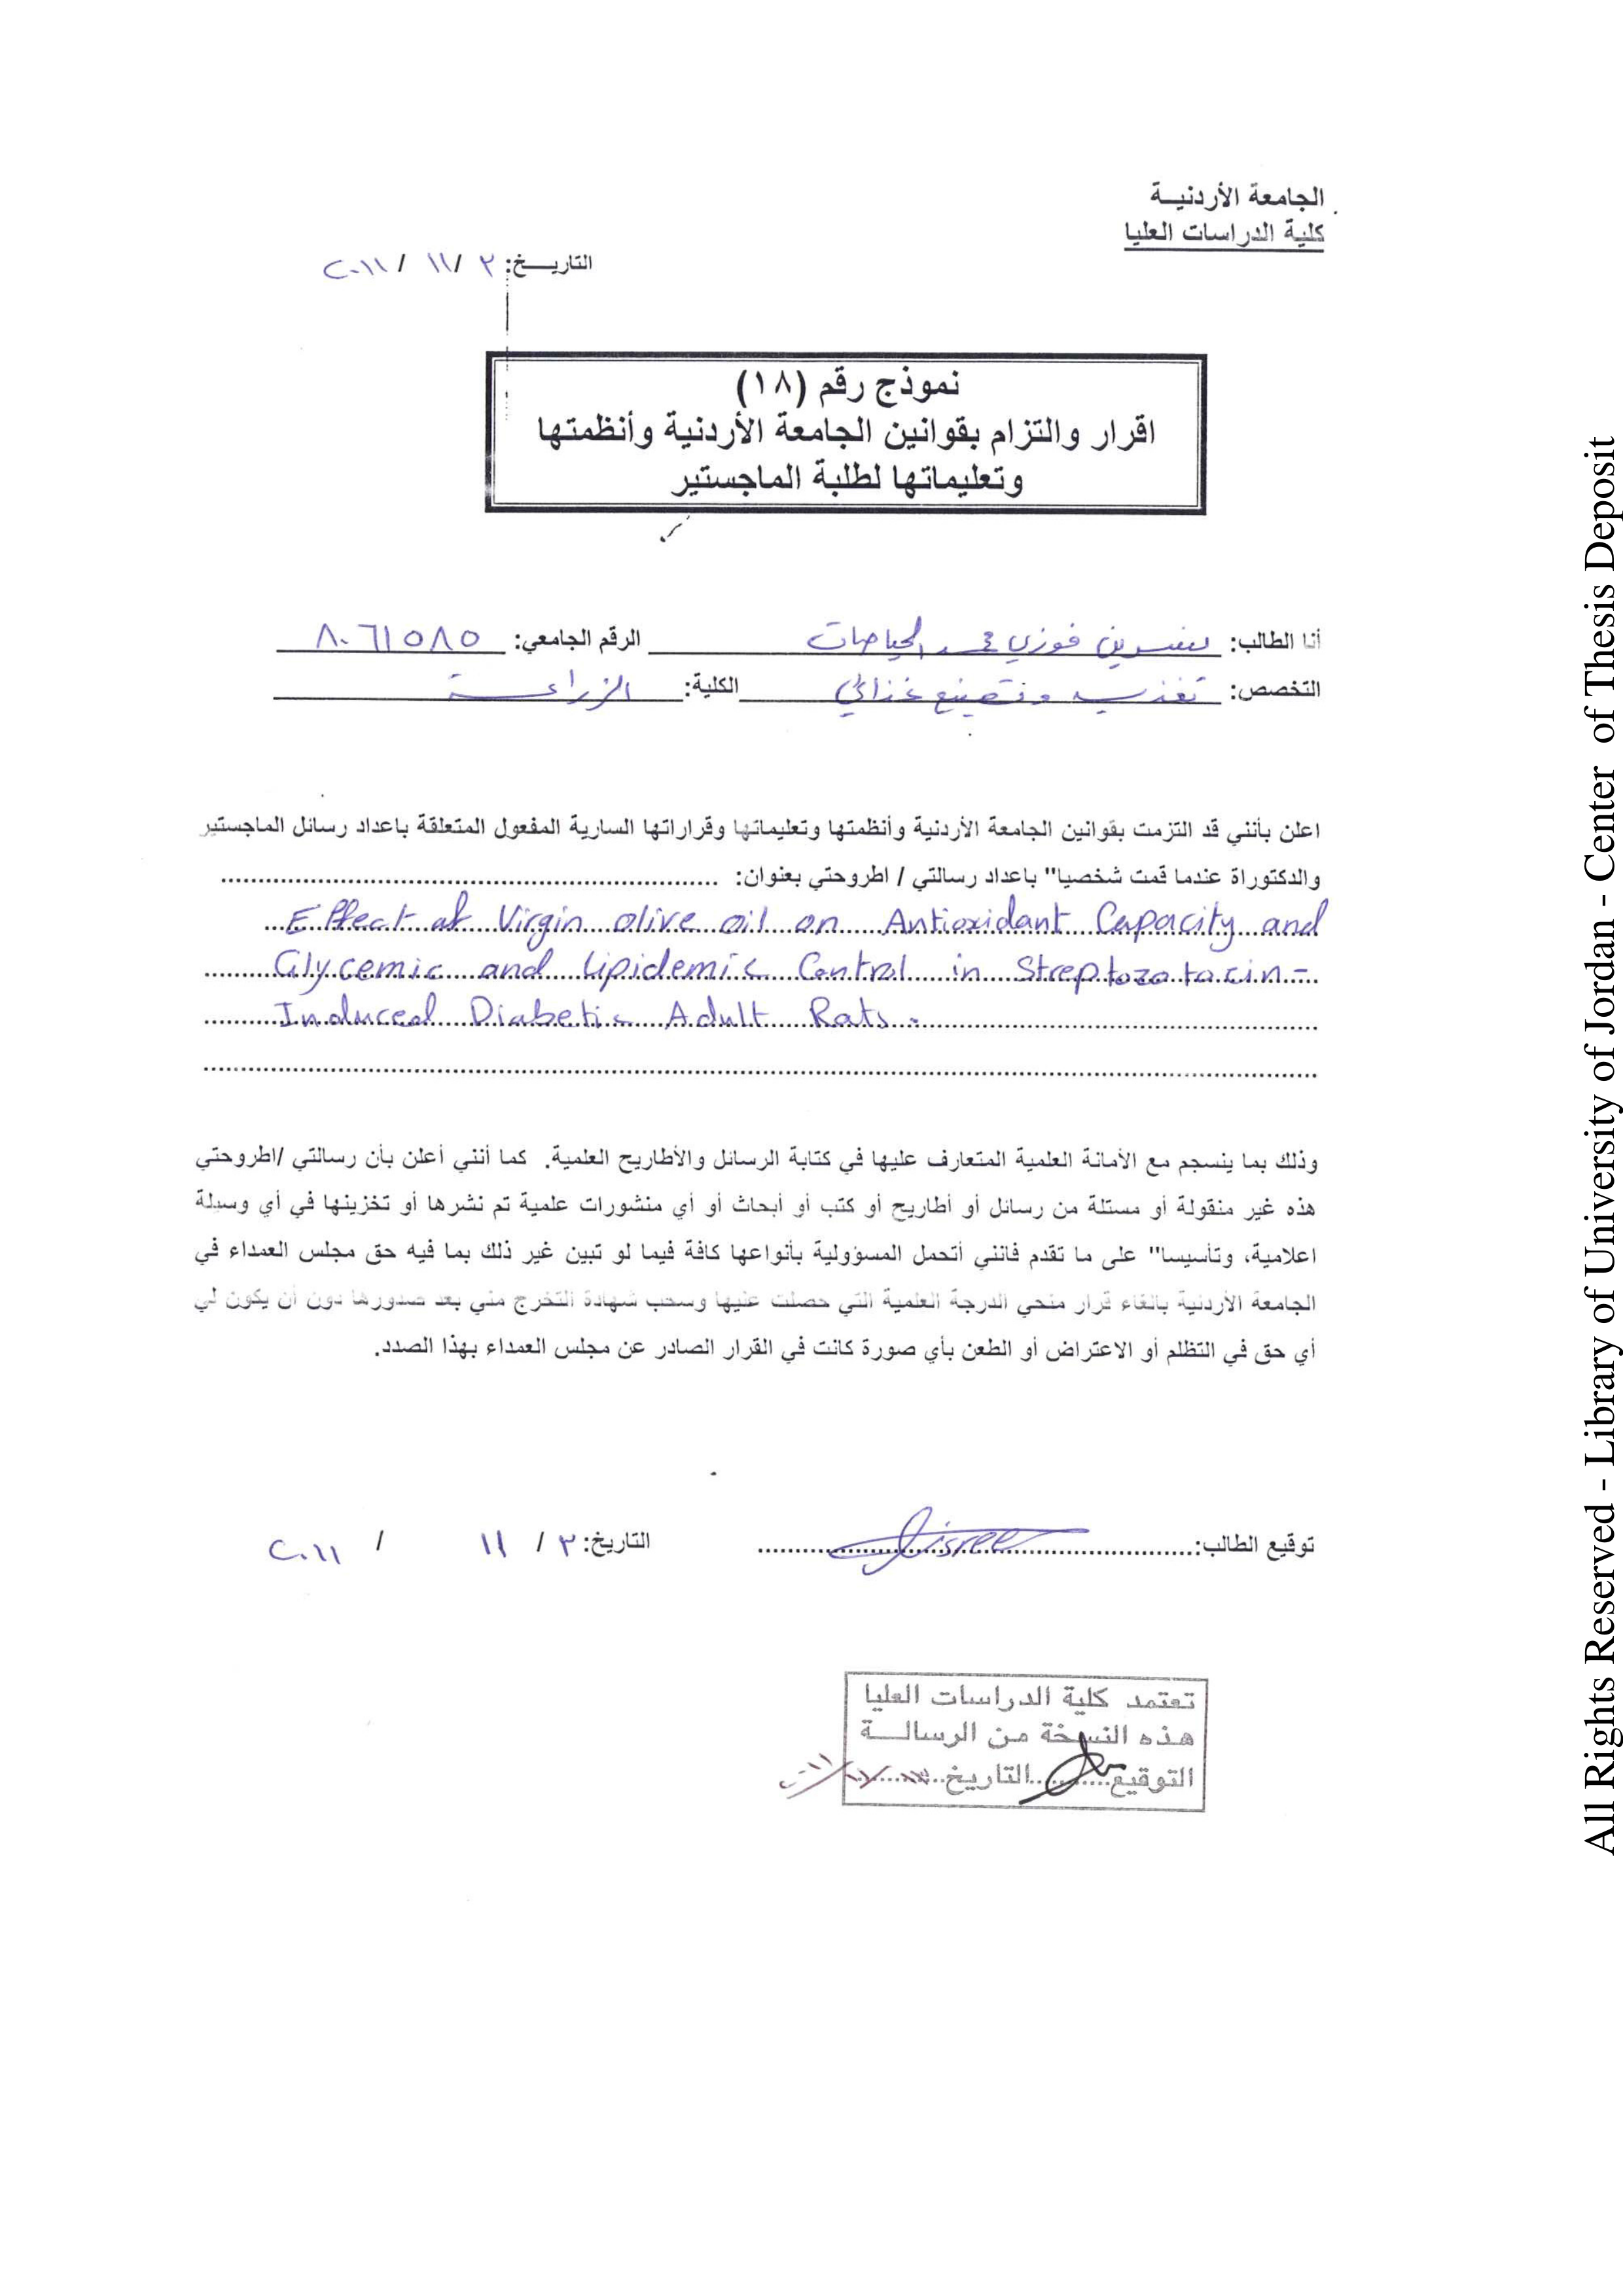 الجامعة الأردنيــة
كلية الدراسات العليا
التاريــخ: ٢ / ١١ / ٢٠١١
نموذج رقم (١٨)
اقرار والتزام بقوانين الجامعة الأردنية وأنظمتها
وتعليماتها لطلبة الماجستير
أنا الطالب: نسرين فوزي محمد الحياصات الرقم الجامعي: ٨٠٦١٥٨٥
التخصص: تغذيـــه وتصنيع غذائي الكلية: الزراعـــة
اعلن بأنني قد التزمت بقوانين الجامعة الأردنية وأنظمتها وتعليماتها وقراراتها السارية المفعول المتعلقة باعداد رسائل الماجستير
والدكتوراة عندما قمت شخصيا" باعداد رسالتي / اطروحتي بعنوان:
Effect of Virgin olive oil on Antioxidant Capacity and
Glycemic and Lipidemic Control in Streptozotocin-
Induced Diabetic Adult Rats.
وذلك بما ينسجم مع الأمانة العلمية المتعارف عليها في كتابة الرسائل والأطاريح العلمية. كما أنني أعلن بأن رسالتي /اطروحتي
هذه غير منقولة أو مستلة من رسائل أو أطاريح أو كتب أو أبحاث أو أي منشورات علمية تم نشرها أو تخزينها في أي وسيلة
اعلامية، وتأسيسا" على ما تقدم فانني أتحمل المسؤولية بأنواعها كافة فيما لو تبين غير ذلك بما فيه حق مجلس العمداء في
الجامعة الأردنية بالغاء قرار منحي الدرجة العلمية التي حصلت عليها وسحب شهادة التخرج مني بعد صدورها دون أن يكون لي
أي حق في التظلم أو الاعتراض أو الطعن بأي صورة كانت في القرار الصادر عن مجلس العمداء بهذا الصدد.
توقيع الطالب: التاريخ: ٢ / ١١ / ٢٠١١
تعتمد كلية الدراسات العليا
هذه النسخة من الرسالــة
التوقيع..........التاريخ..........
All Rights Reserved - Library of University of Jordan - Center of Thesis Deposit